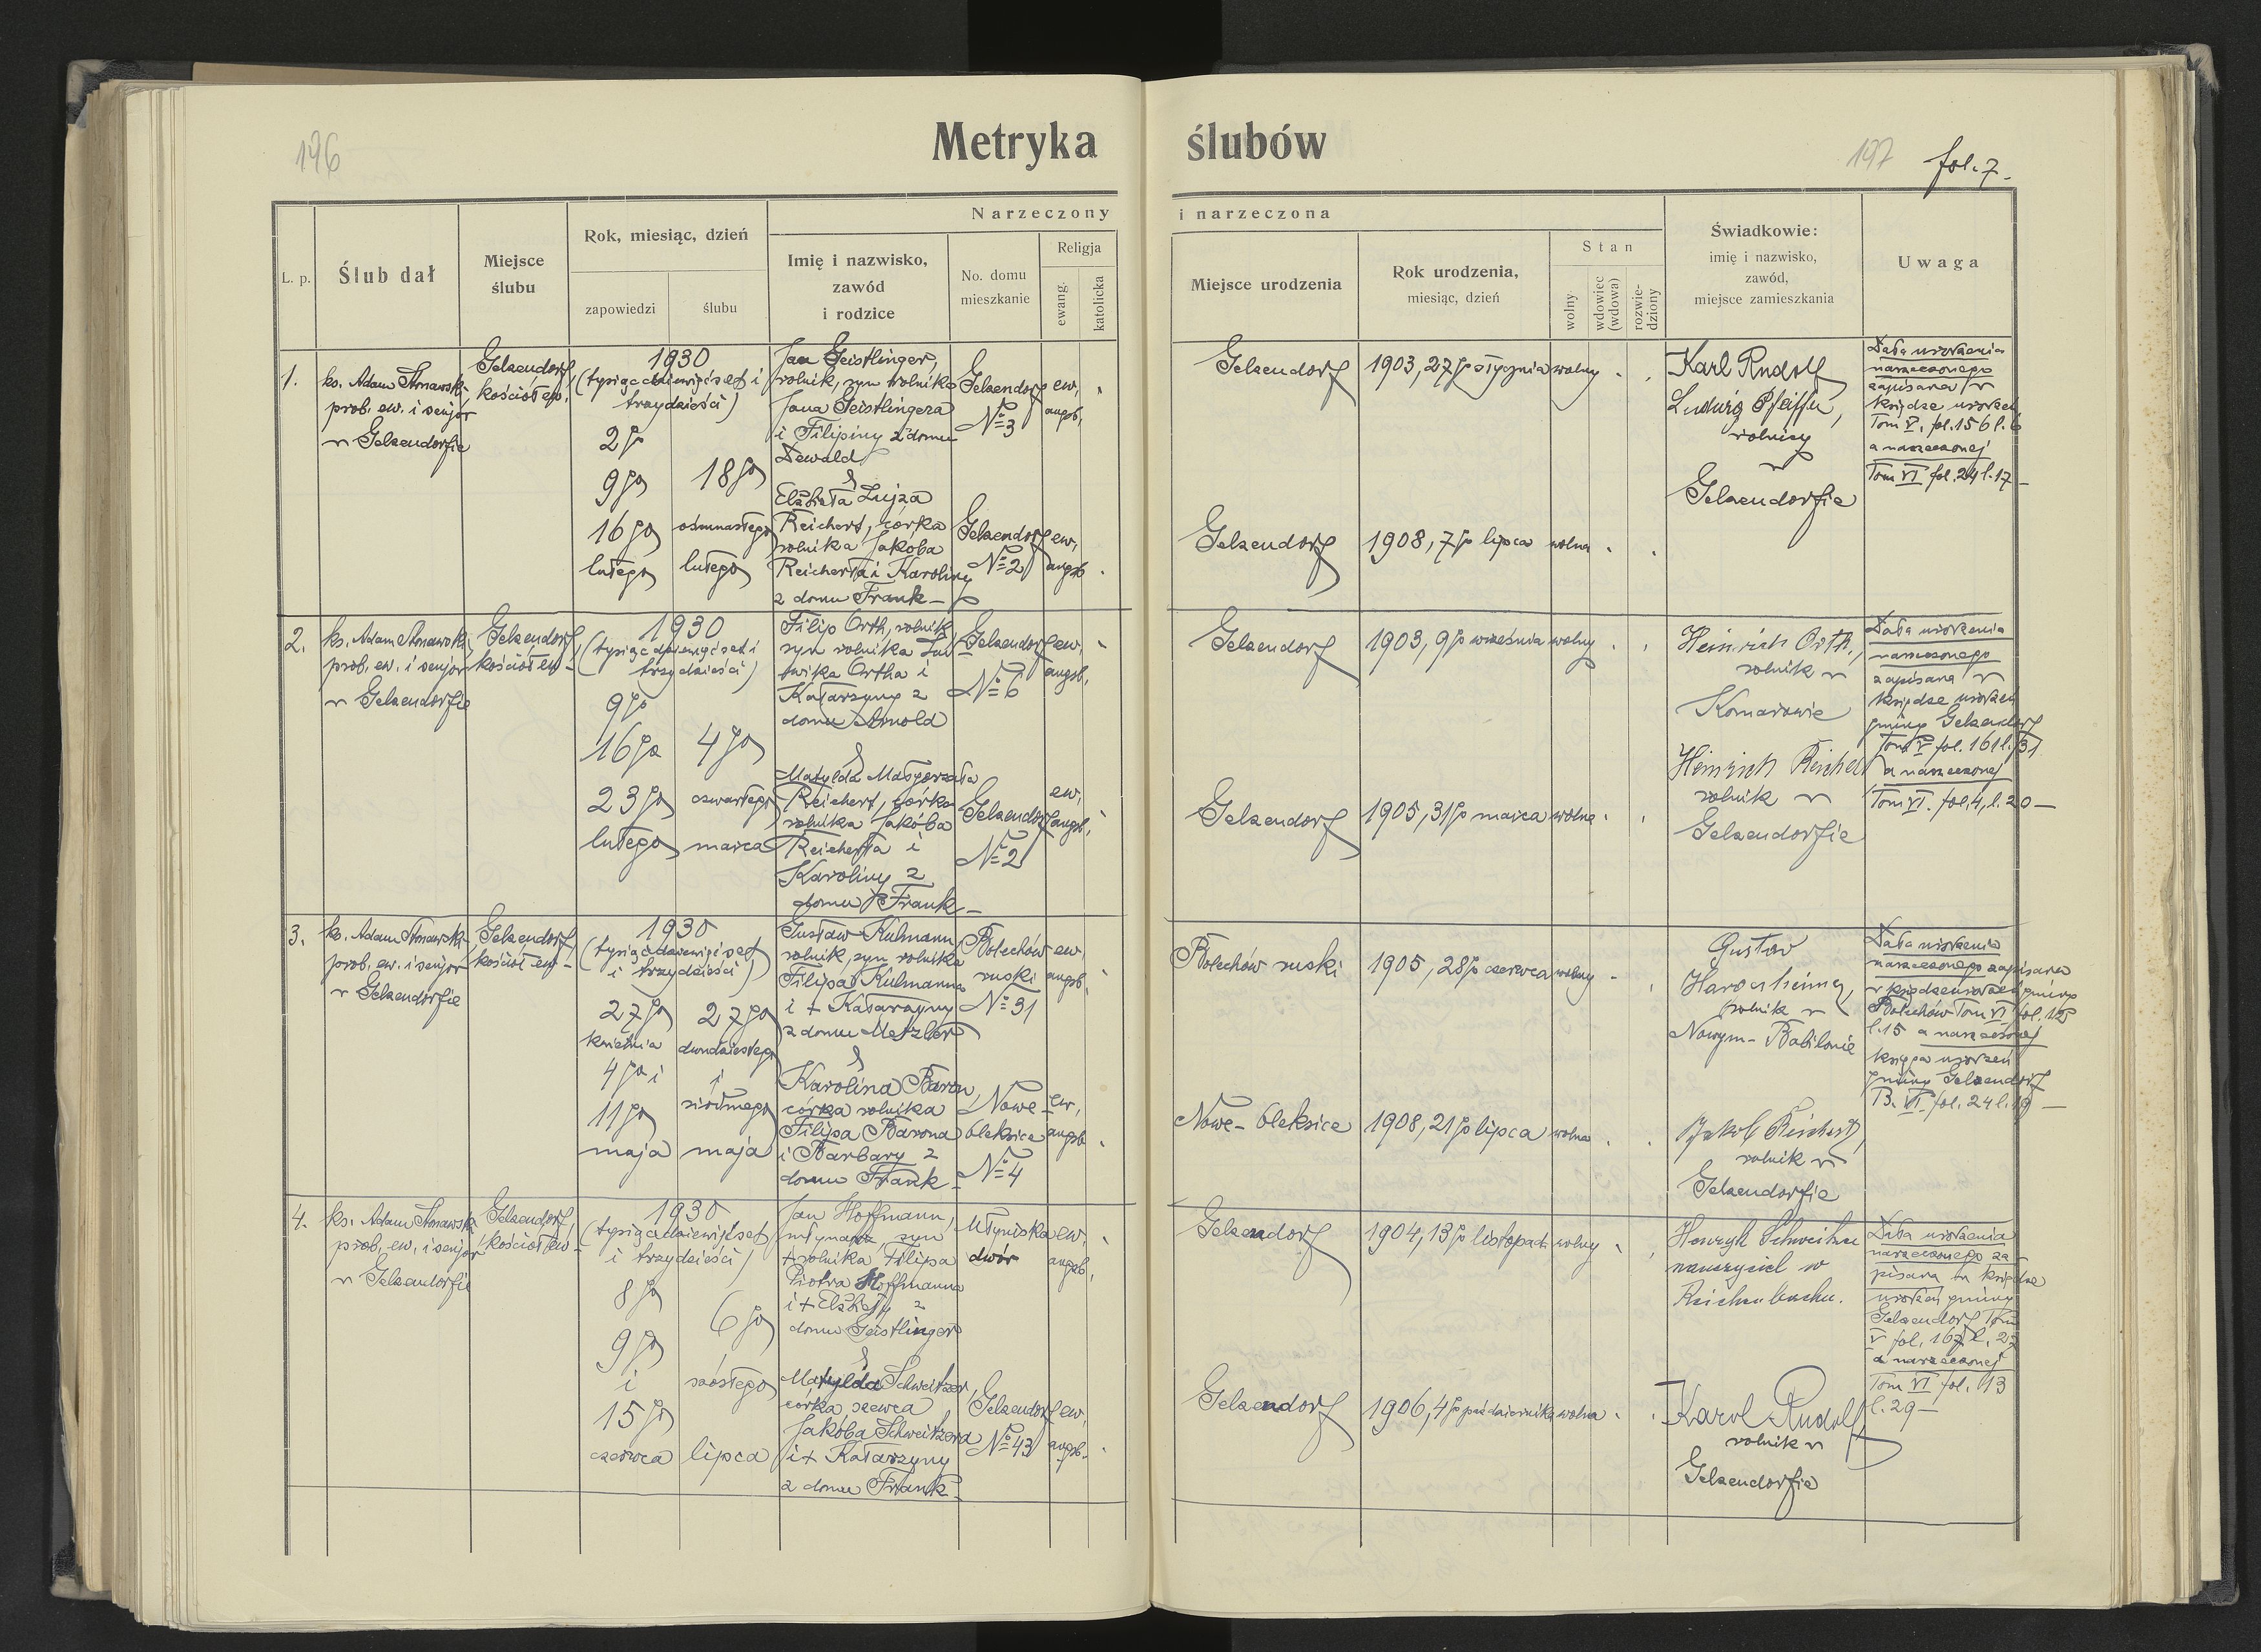 196
Metryka ślubów
197
fol. 7.
L. p.
Ślub dał
Miejsce
ślubu
Rok, miesiąc, dzień
zapowiedzi
ślubu
Narzeczony
Imię i nazwisko,
zawód
i rodzice
No. domu
mieszkanie
Religja
ewang.
katolicka
i narzeczona
Miejsce urodzenia
Rok urodzenia,
miesiąc, dzień
Stan
wolny
wdowiec
(wdowa)
rozwie-
dziony
Świadkowie:
imię i nazwisko,
zawód,
miejsce zamieszkania
Uwaga
1.
ks. Adam
prob. ew. i senjor
w Gelsendorfie
Gelsendorf,
kościół ew.
1930
(tysiąc dziewięćset i
trzydzieści)
2go
9go
16go
lutego
18go
ośmnastego
lutego
Jan Geistlinger,
rolnik, syn rolnika
Jana Geistlingera
i Filipiny z domu
Dewald
Gelsendorf
№ 3
ew.
augsb.
Elżbieta Lujza
Reichert, córka
rolnika Jakóba
Reicherta i Karoliny
z domu Frank -
Gelsendorf
№ 2
ew.
augsb.
Gelsendorf
1903, 27go stycznia
wolny
Gelsendorf
1908, 7go lipca
wolna
Karl Rudolf
Ludwig Pfeiffer,
rolnicy
w
Gelsendorfie
Data urodzenia
narzeczonego
zapisana w
księdze urodzeń
Tom V. fol. 156 l. 6
a narzeczonej
Tom VI fol. 24 l. 17 -
2.
ks. Adam
prob. ew. i senjor
w Gelsendorfie
Gelsendorf,
kościół ew -
1930
(tysiąc dziewięćset i
trzydzieści)
9go
16go
23go
lutego
4go
czwartego
marca
Filip Orth, rolnik
syn rolnika Lud
wika Ortha i
Katarzyny z
domu Arnold
Gelsendorf
№ 6
ew.
augsb.
Matylda Małgorzata
Reichert, córka
rolnika Jakóba
Reicherta i
Karoliny z
domu Frank -
Gelsendorf
№ 2
ew.
augsb.
Gelsendorf
1903, 9go września
wolny
Gelsendorf
1905, 31go marca
wolna
Heinrich Orth,
rolnik w
Komarowie
Heinrich Reichert
rolnik w
Gelsendorfie
Data urodzenia
narzeczonego
zapisana w
księdze urodzeń
gminy Gelsendorf
Tom V fol. 161 l. 31
a narzeczonej
Tom VI. fol. 4, l. 20 -
3.
ks. Adam
prob. ew. i senjor
w Gelsendorfie
Gelsendorf
kościół ew -
1930
(tysiąc dziewięćset
i trzydzieści)
27go
kwietnia
4go i
11go
maja
27go
dwudziestego
i
siódmego
maja
Gustaw Kulmann,
rolnik, syn rolnika
Filipa Kulmanna
i + Katarzyny
z domu Metzler
Bolechów
ruski
№ 31
ew.
augsb.
Karolina Baron,
córka rolnika
Filipa Barona
i Barbary z
domu Frank -
Nowe -
Oleksice
№ 4
ew.
augsb.
Bolechów ruski
1905, 28go czerwca
wolny
Nowe - Oleksice
1908, 21go lipca
wolna
Gustav
rolnik w
Nowym - Babilonie
Jakob Reichert,
rolnik w
Gelsendorfie
Data urodzenia
narzeczonego zapisana
w księdze urodzeń gminy
Bolechów Tom VI fol. 125
l. 15 a narzeczonej
księga urodzeń
gminy Gelsendorf
B. VI. fol. 24 l. 19 -
4.
ks. Adam
prob. ew. i senjor
w Gelsendorfie
Gelsendorf,
kościół ew -
1930
(tysiąc dziewięćset
i trzydzieści)
8go
9go
i
15go
czerwca
6go
szóstego
lipca
Jan Hoffmann,
młynarz, syn
+ rolnika Filipa
Piotra Hoffmanna
i + Elżbiety z
domu Geistlinger
Młyniska
dwór
ew.
augsb.
Matylda Schweitzer,
córka szewca
Jakóba Schweitzera
i + Katarzyny
z domu Frank -
Gelsendorf
№ 43
ew.
augsb.
Gelsendorf
1904, 13go listopada
wolny
Gelsendorf
1906, 4go października
wolna
Henryk Schweitzer
nauczyciel w
Reichenbachu.
Karol Rudolf
rolnik w
Gelsendorfie
Data urodzenia
narzeczonego za -
pisana w księdze
urodzeń gminy
Gelsendorf Tom
V fol. 167 l. 27
a narzeczonej
Tom VI fol. 13
l. 29 -